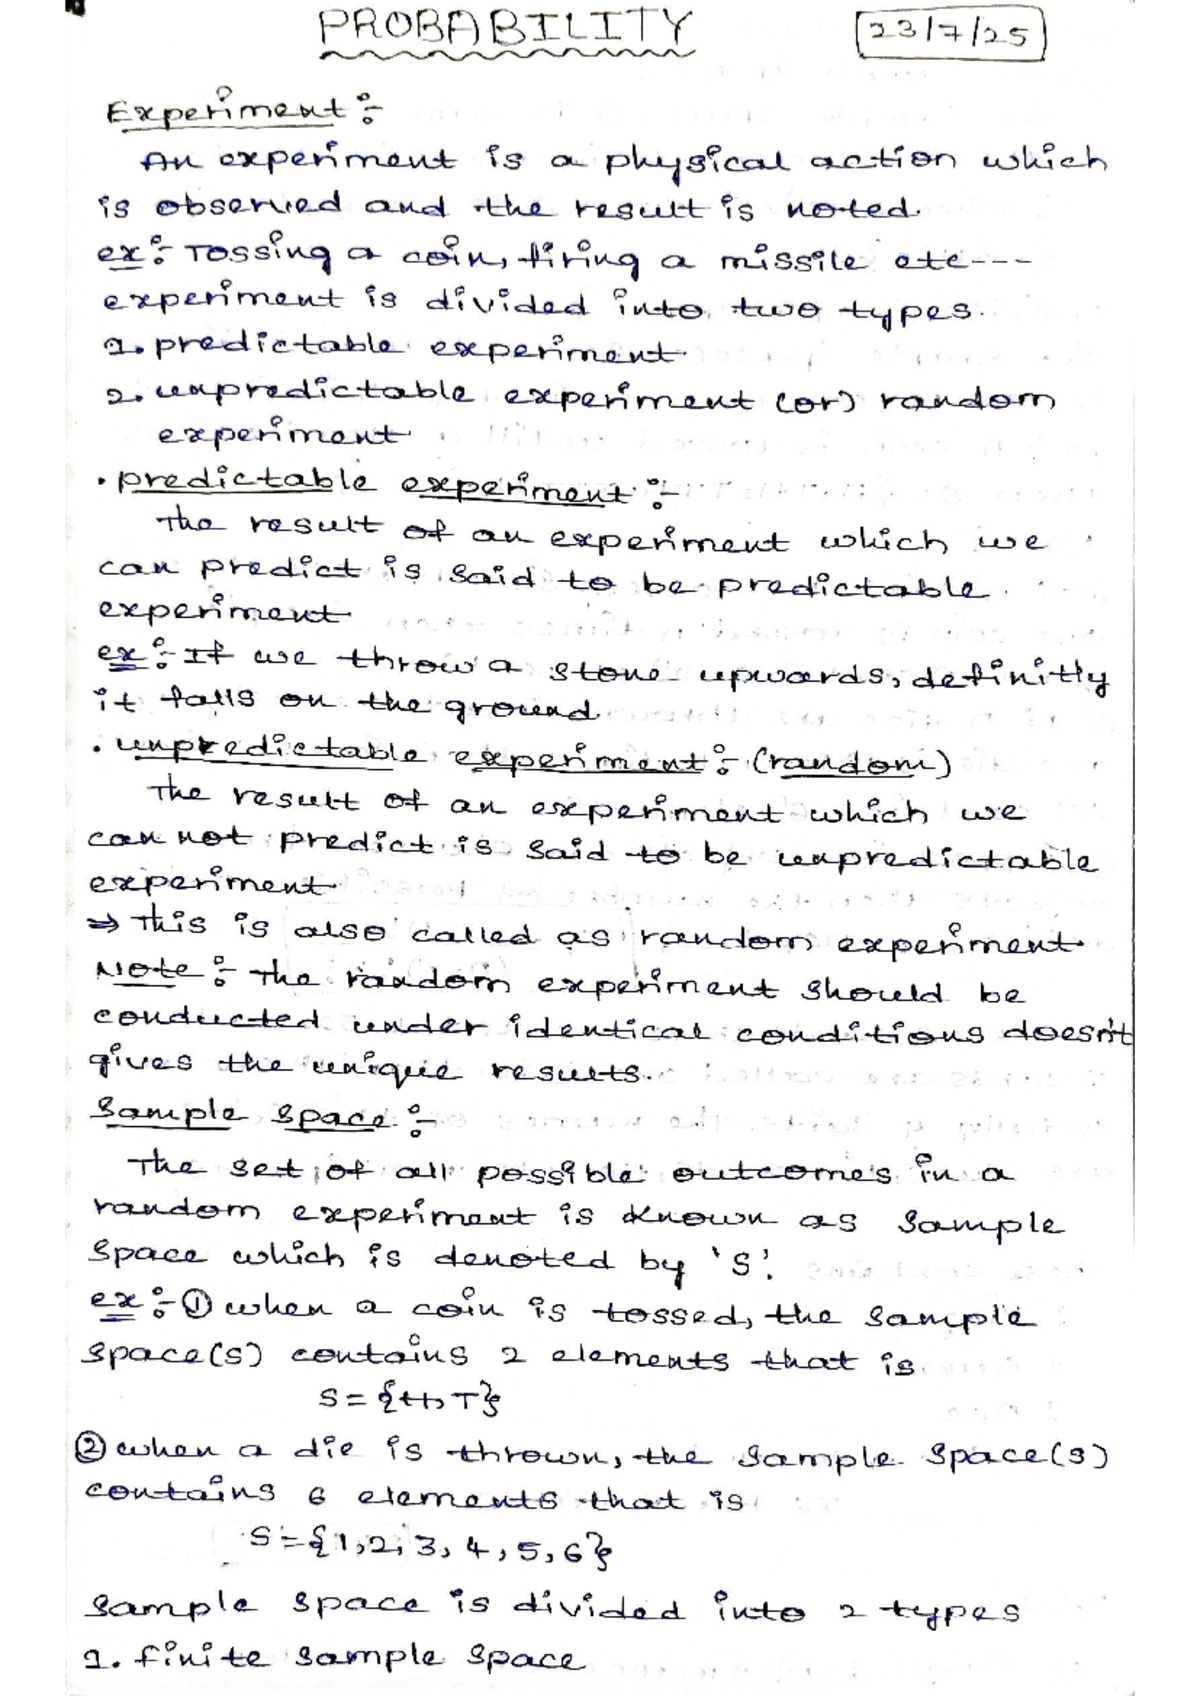 PROBABILITY
23/7/25
Experiment :-
An experiment is a physical action which
is observed and the result is noted.
ex :- Tossing a coin, firing a missile etc---
experiment is divided into two types.
1. predictable experiment
2. unpredictable experiment (or) random
experiment
. predictable experiment :-
The result of an experiment which we
can predict is said to be predictable
experiment
ex :- If we throw a stone upwards, definitly
it falls on the ground.
. unpredictable experiment :- (random)
The result of an experiment which we
can not predict is said to be unpredictable
experiment
⇒ This is also called as random experiment
Note :- The random experiment should be
conducted under identical conditions doesn't
gives the unique results.
Sample space :-
The set of all possible outcomes in a
random experiment is known as sample
space which is denoted by 'S'.
ex :- ① when a coin is tossed, the sample
space(s) contains 2 elements that is
S = {H, T}
② when a die is thrown, the sample space(s)
contains 6 elements that is
S = {1, 2, 3, 4, 5, 6}
sample space is divided into 2 types
1. finite sample space